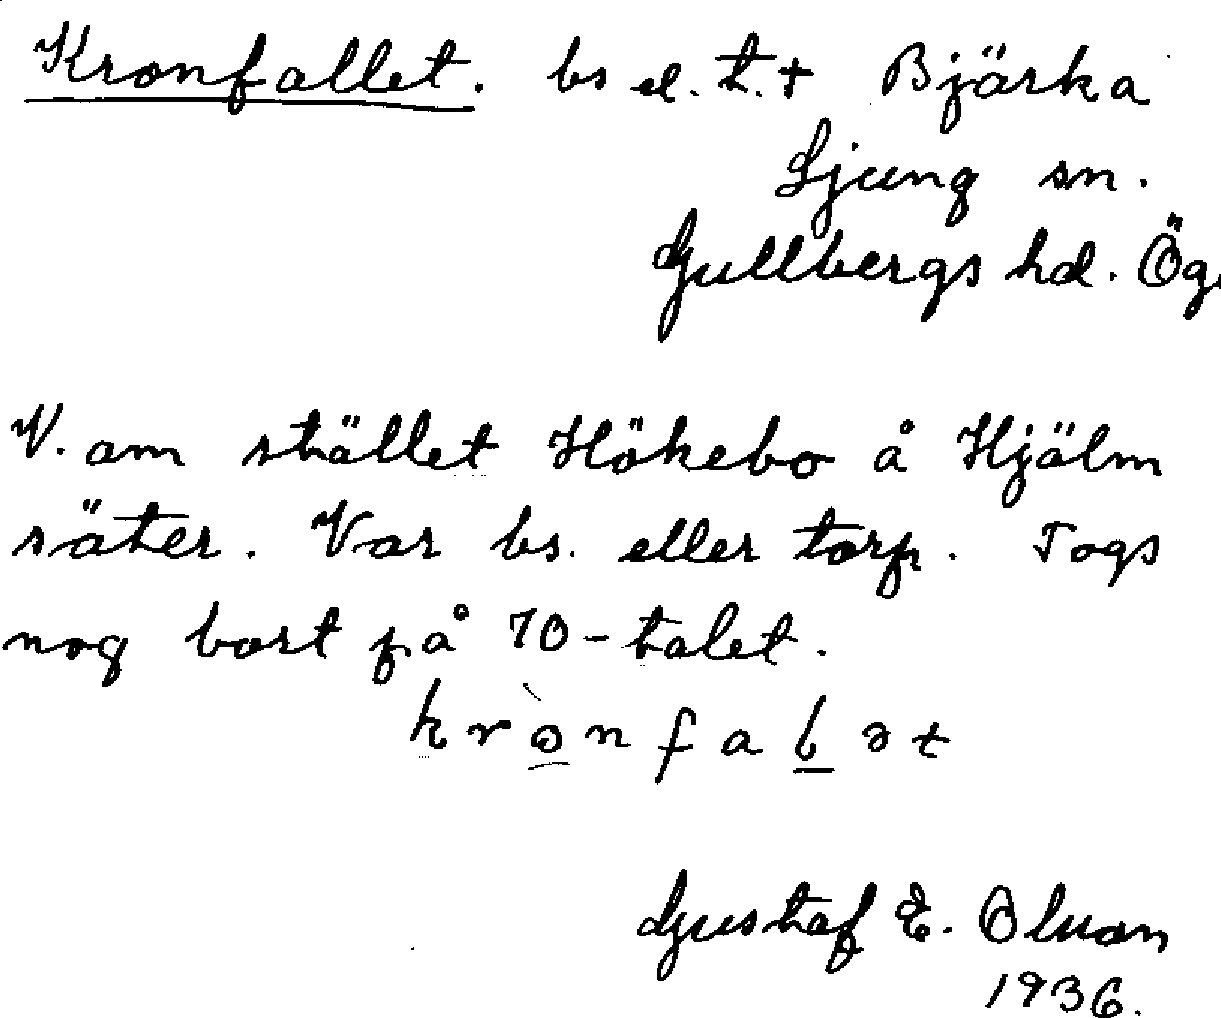 Kronfallet. bs el. t. + Bjärka
Ljung sn.
Gullbergs hd. Ög.
V. om stället Hökebo å Hjälm
säter. Var bs. eller torp. Togs
nog bort på 70-talet.
krònfalət
Gustaf E. Olsson
1936.